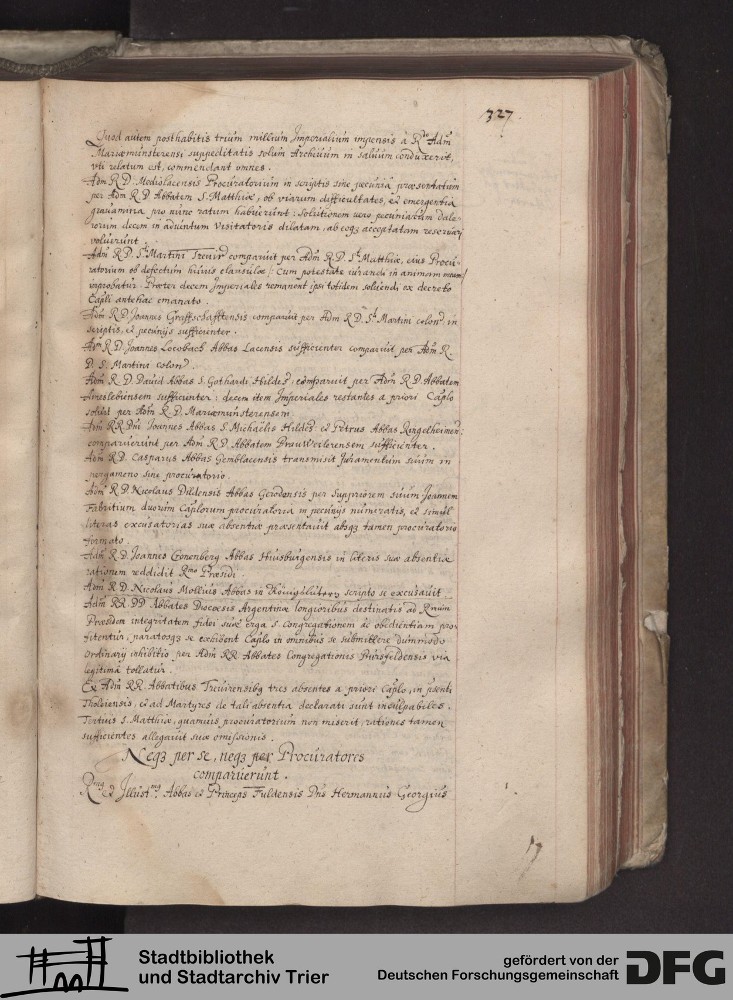 327.
Quod autem posthabitis trium millium Imperialium impensis à Rdo Adm
Mariæmünsterensi suppeditatis solum Archivum in salvum conduxerit,
vti relatum est, commendant omnes.
Adm R D. Mediolacensis Procuratorium in scriptis sine pecunia præsentatum
per Adm R D Abbatem S. Matthiæ, ob viarum difficultates, et emergentia
gravamina pro nunc ratum habuerunt: solutionem vero pecuniariam dale-
rorum decem in adventum Visitatoris dilatam, ab eoq3 acceptatam reservari
voluerunt.
Adm R D. Sti Martini Trevir comparuit per Adm R D. Sti Matthiæ, eius Procu-
ratorium ob defectum huius clausulæ /: Cum potestate iurandi in animam
improbatur. Præter decem Imperiales remanent ipsi totidem solvendi ex decreto
Capli antehac emanato.
Adm R D. Joannes Graffschafftensis comparuit per Adm R D. Sti Martini colon in
scriptis, et pecunijs sufficienter.
Adm R D. Joannes Locobach Abbas Lacensis sufficienter comparuit per Adm R.
D. S. Martini colon
Adm R. D. David Abbas S. Gothardi Hildes comparuit per Adm R D. Abbatem
Ameslebiensem sufficienter: decem item Imperiales restantes a priori Caplo
solvit per Adm R D. Mariæmünsterensem.
Adm RR Dni Joannes Abbas S. Michaëlis Hildes et Petrus Abbas Ringelheimen:
comparuerunt per Adm R D. Abbatem Brauweilerensem sufficienter.
Adm R D. Casparus Abbas Gemblacensis transmisit Juramentum suum in
pergameno sine procuratorio.
Adm R D. Nicolaus Dildensis Abbas Gerodensis per Suppriorem suum Joannem
Fabritium duorum Caplorum procuratoria in pecunijs numeratis, et simul
literas excusatorias suæ absentiæ præsentavit absq3 tamen procuratorio
formato.
Adm R D. Joannes Cronenberg Abbas Huisburgensis in literis suæ absentiæ
rationem reddidit Rmo Præsidi.
Adm R D. Nicolaus Mollius Abbas in Königslutern scripto se excusavit.
Adm RR DD Abbates Dioecesis Argentinæ longioribus destinatis ad Rmum
Præsidem integritatem fidei suæ erga S. Congregationem ac obedientiam pro-
fitentur, paratosq3 se exhibent Caplo in omnibus se submittere dummodo
Ordinarij inhibitio per Adm RR Abbates Congregationis Bursfeldensis via
legitima tollatur.
Ex Adm RR. Abbatibus Trevirensibq tres absentes a priori Caplo, in psenti
Tholeiensis, et ad Martyres de tali absentia declarati sunt inculpabiles.
Tertius S. Matthiæ, quamvis procuratorium non miserit, rationes tamen
sufficientes allegavit suæ omissionis.
Neq3 per se, neq3 per Procuratores
comparuerunt.
Rmus et Illustmus Abbas et Princeps Fuldensis Dns Hermannus Georgius
Stadtbibliothek
und Stadtarchiv Trier
gefördert von der
Deutschen Forschungsgemeinschaft
DFG